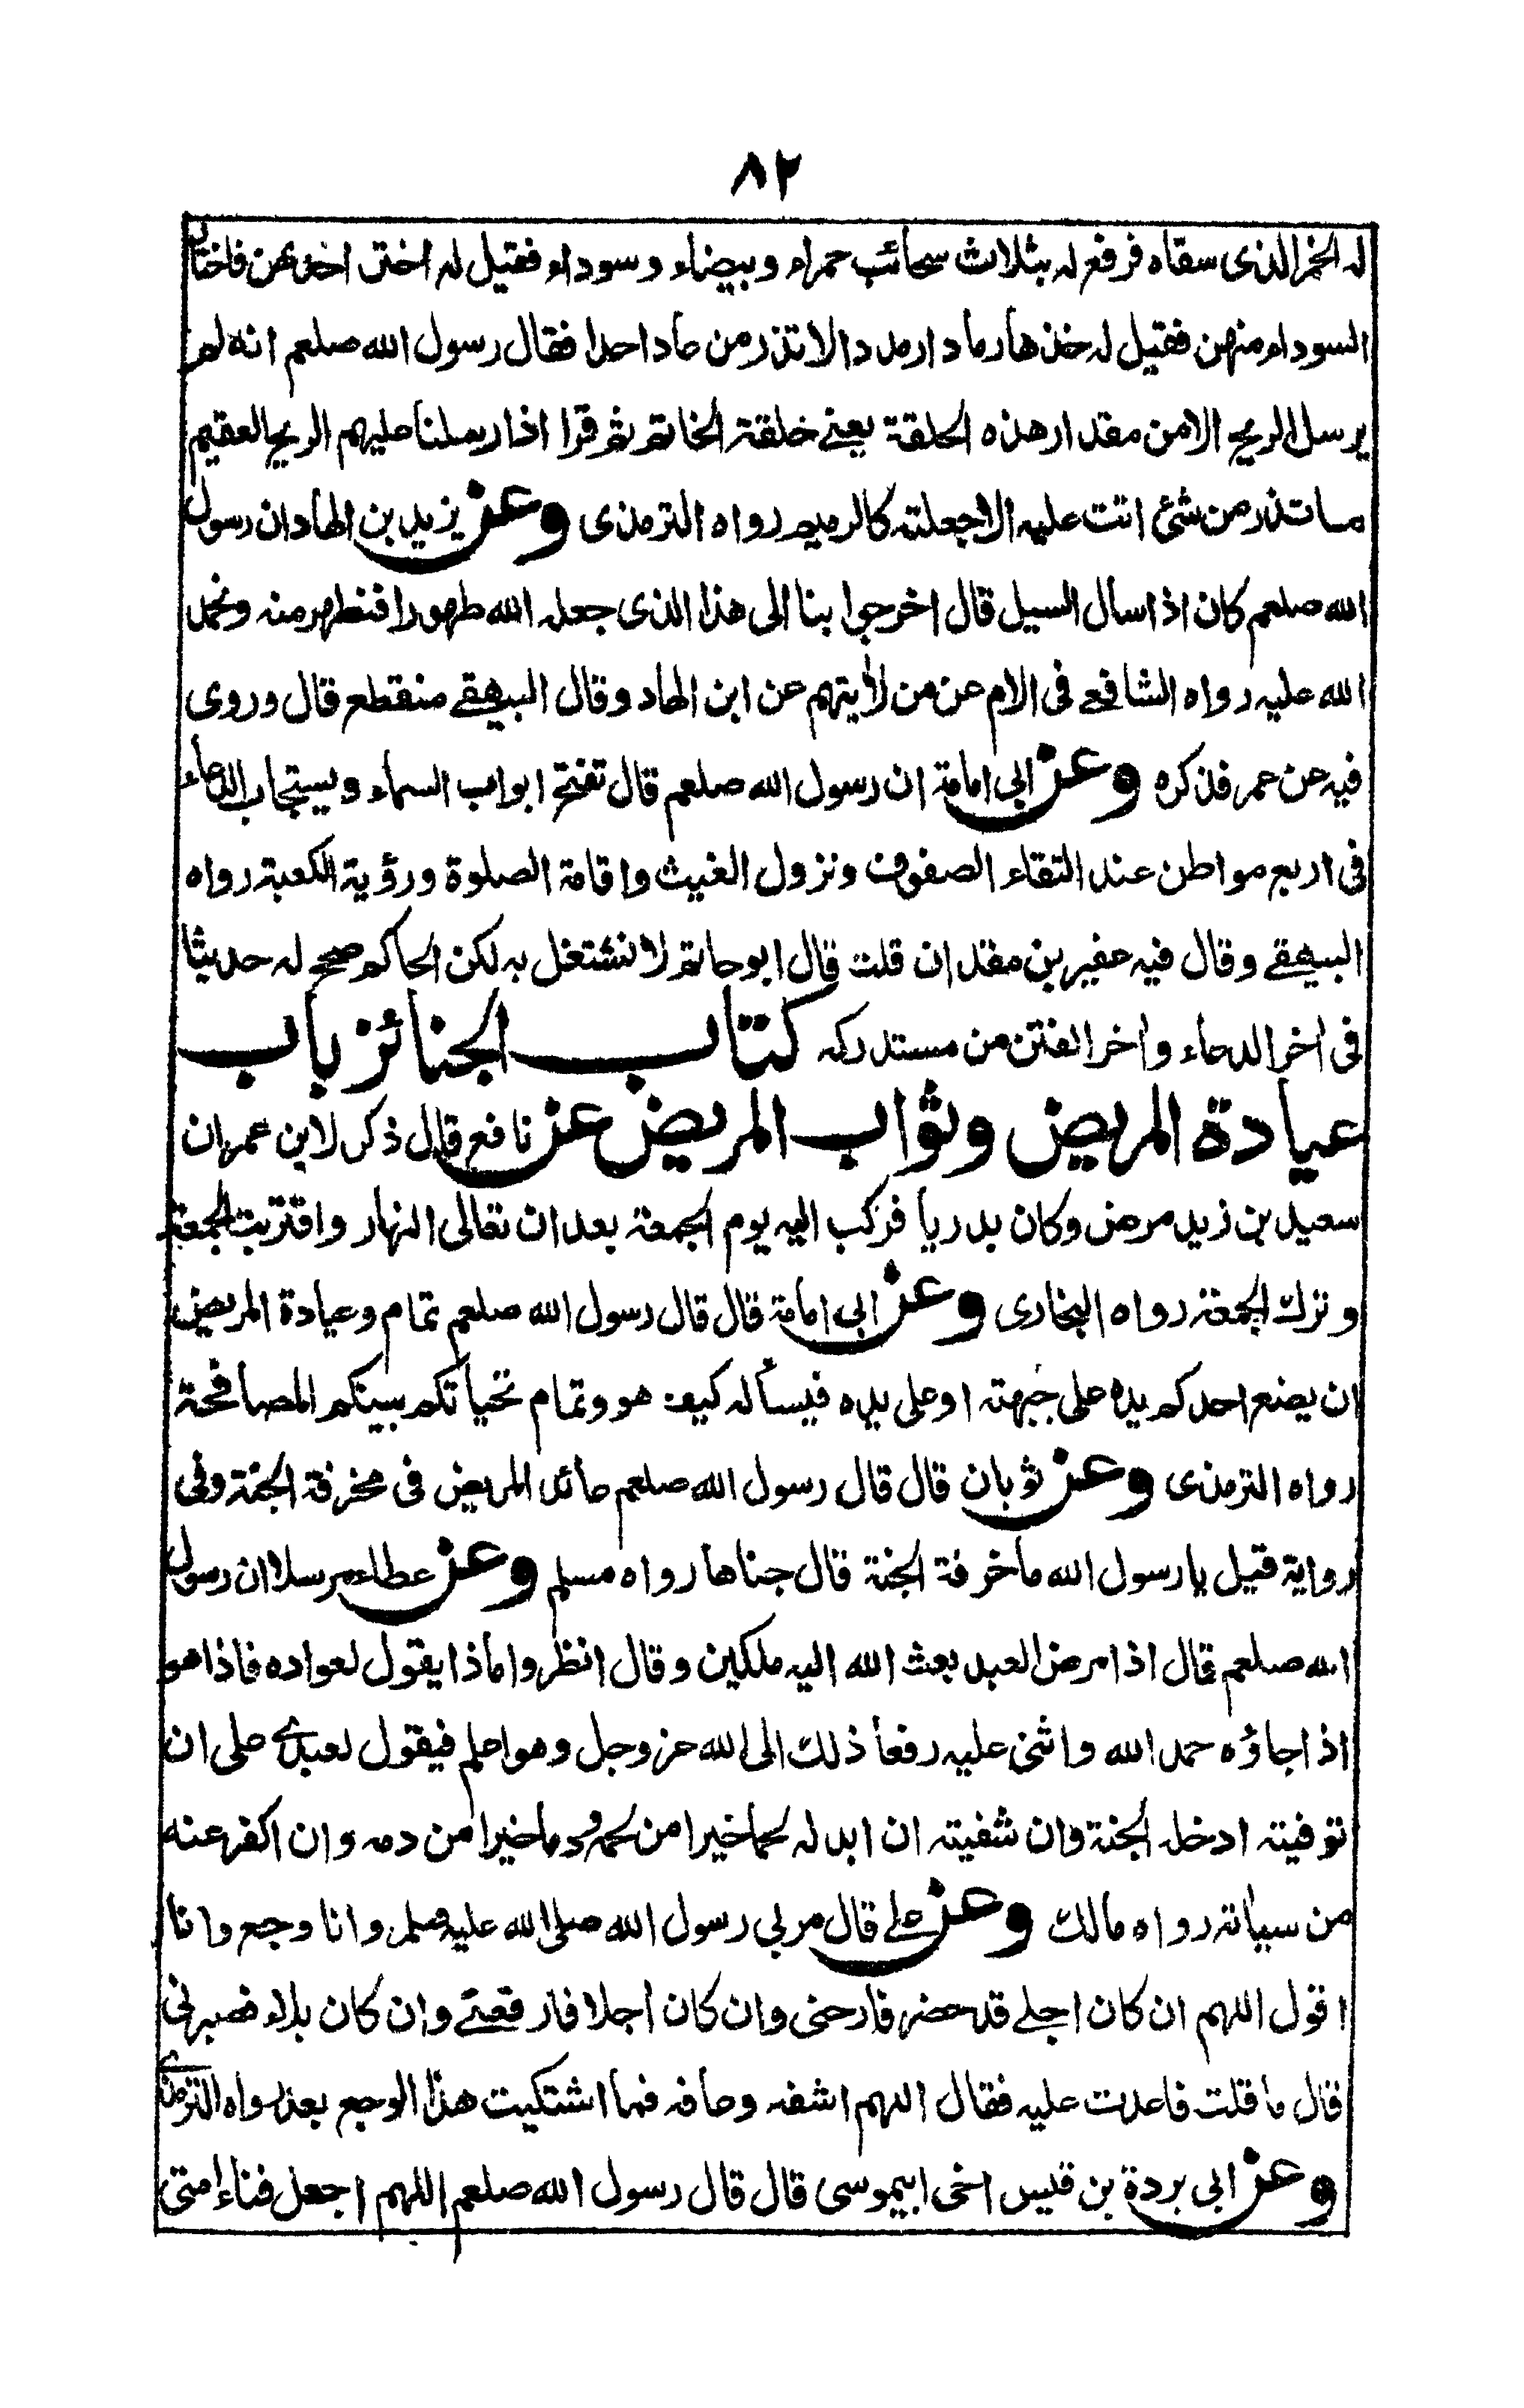 ٨٢
له الخمر الذى سقاه فرفع له بثلاث سحائب حمراء وبيضاء وسوداء فقيل له اختر احدىهن فاختار
السوداء منهن فقيل له خذها رمادا رمددا لا تذر من عاد احدا فقال رسول الله صلعم انه لم
يرسل الريح الا من مقدار هذه الحلقة يعنے خلقة الخاتم ثم قرا اذا رسلنا عليهم الريح العقيم
ما تذر من شئ اتت عليه الا جعلته كالرميم رواه الترمذى وعن يزيد بن الهاد ان رسول
الله صلعم كان اذا سال السيل قال اخرجوا بنا الى هذا الذى جعله الله طهورا فنطهر منه ونحمد
الله عليه رواه الشافعے فى الام عن من لا يتهم عن ابن الهاد وقال البيهقے منقطع قال وروى
فيه عن عمر فذكره وعن ابى امامة ان رسول الله صلعم قال تفتح ابواب السماء ويستجاب الدعاء
فى اربع مواطن عند التقاء الصفوف ونزول الغيث واقامة الصلوة ورؤية الكعبة رواه
البيهقے وقال فيه عفير بن مقدان قلت قال ابو حاتم لا نشتغل به لكن الحاكم صحح له حديثا
فى اخر الدعاء واخر الفتن من مستدركه كتاب الجنائز باب
عيادة المريض وثواب المريض عن نافع قال ذكر لابن عمر ان
سعيد بن زيد مرض وكان بدريا فركب اليه يوم الجمعة بعد ان تعالى النهار واقتربت الجمعة
وترك الجمعة رواه البخارى وعن ابى امامة قال قال رسول الله صلعم تمام وعيادة المريض
ان يضع احدكم يده على جبهته او على يده فيسأله كيف هو وتمام تحياتكم بينكم المصافحة
رواه الترمذى وعن ثوبان قال قال رسول الله صلعم عائد المريض فى مخرفة الجنة وفى
رواية قيل يا رسول الله ما خرفة الجنة قال جناها رواه مسلم وعن عطاء مرسلا ان رسول
الله صلعم قال اذا مرض العبد بعث الله اليه ملكين وقال انظروا ماذا يقول لعواده فاذا هو
اذا جاؤه حمد الله واثنى عليه رفعا ذلك الى الله عز وجل وهو اعلم فيقول لعبدے على ان
توفيته ادخله الجنة وان شفيته ان ابدله لحما خيرا من لحمه ودما خيرا من دمه وان اكفر عنه
من سياته رواه مالك وعن علے قال مر بى رسول الله صلى الله عليه وسلم وانا وجع وانا
اقول اللهم ان كان اجلے قد حضر فارحنى وان كان اجلا فارفعنے وان كان بلاء فصبرنى
قال ما قلت فاعدت عليه فقال اللهم اشفه وعافه فما اشتكيت هذا الوجع بعد رواه الترمذے
وعن ابى بردة بن قيس اخى ابيموسى قال قال رسول الله صلعم اللهم اجعل فناء امتى